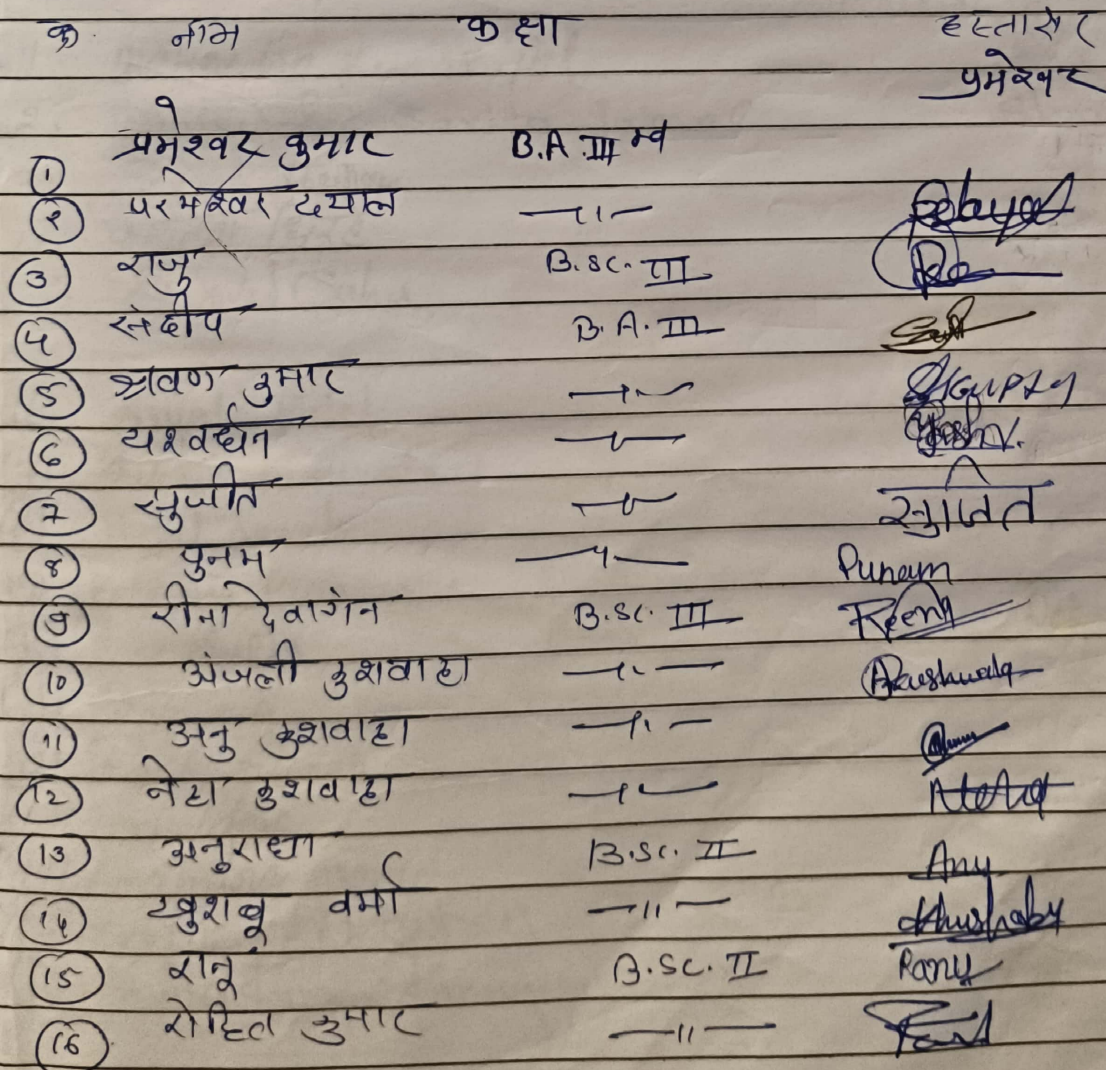 क्र. नाम कक्षा हस्तासेर
प्रमेश्वर
① प्रमेश्वर कुमार B.A. III
② परमेश्वर दयाल —11—
③ राजु B.SC. III
④ संदीप B.A. III
⑤ श्रवण कुमार —11— Gupta
⑥ यशवर्धन —11— Yashv.
⑦ सुजीत —11— सुजित
⑧ पुनम —11— Punam
⑨ रीना देवांगन B.SC. III Reena
⑩ अंजली कुशवाहा —11— Akushwaha
⑪ अनु कुशवाहा —11—
⑫ नेहा कुशवाहा —11— Neha
⑬ अनुराधा B.SC. II Anu
⑭ खुशबू वर्मा —11— Khushabu
⑮ रानू B.SC. II Ranu
⑯ रोहित कुमार —11—